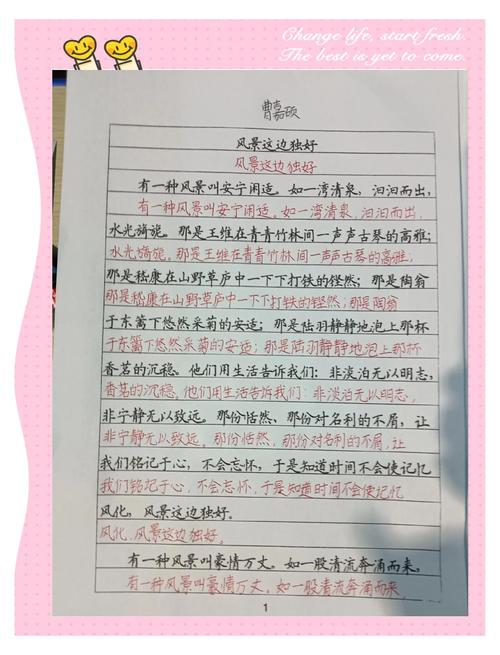 Change life, start fresh.
The best is yet to come.
曹嘉硕
风景这边独好
风景这边独好
有一种风景叫安宁闲适。如一湾清泉，汩汩而出，
有一种风景叫安宁闲适。如一湾清泉，汩汩而出，
水光旖旎。那是王维在青青竹林间一声声古琴的高雅；
水光旖旎。那是王维在青青竹林间一声声古琴的高雅；
那是嵇康在山野草庐中一下下打铁的铿然；那是陶翁
那是嵇康在山野草庐中一下下打铁的铿然；那是陶翁
于东篱下悠然采菊的安适；那是陆羽静静地泡上那杯
于东篱下悠然采菊的安适；那是陆羽静静地泡上那杯
香茗的沉稳。他们用生活告诉我们：非淡泊无以明志，
香茗的沉稳。他们用生活告诉我们：非淡泊无以明志，
非宁静无以致远。那份恬然、那份对名利的不屑，让
非宁静无以致远。那份恬然，那份对名利的不屑，让
我们铭记于心，不会忘怀，于是知道时间不会使记忆
我们铭记于心，不会忘怀，于是知道时间不会使记忆
风化，风景这边独好。
风化，风景这边独好。
有一种风景叫豪情万丈。如一股清流奔涌而来，
有一种风景叫豪情万丈。如一股清流奔涌而来
1